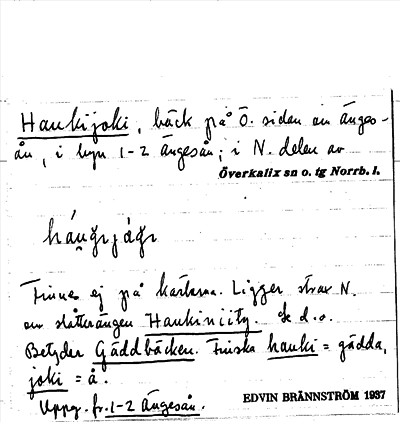 Haukijoki, bäck på Ö. sidan om Änges-
ån, i byn 1-2 Ängesån; i N. delen av
Överkalix sn o. tg Norrb. l.
Finnes ej på kartorna. Ligger strax N.
om slåtterängen Haukiniity. Se d.o.
Betyder Gäddbäcken. Finska hauki = gädda,
joki = å.
Uppg. fr. 1-2 Ängesån.
EDVIN BRÄNNSTRÖM 1937